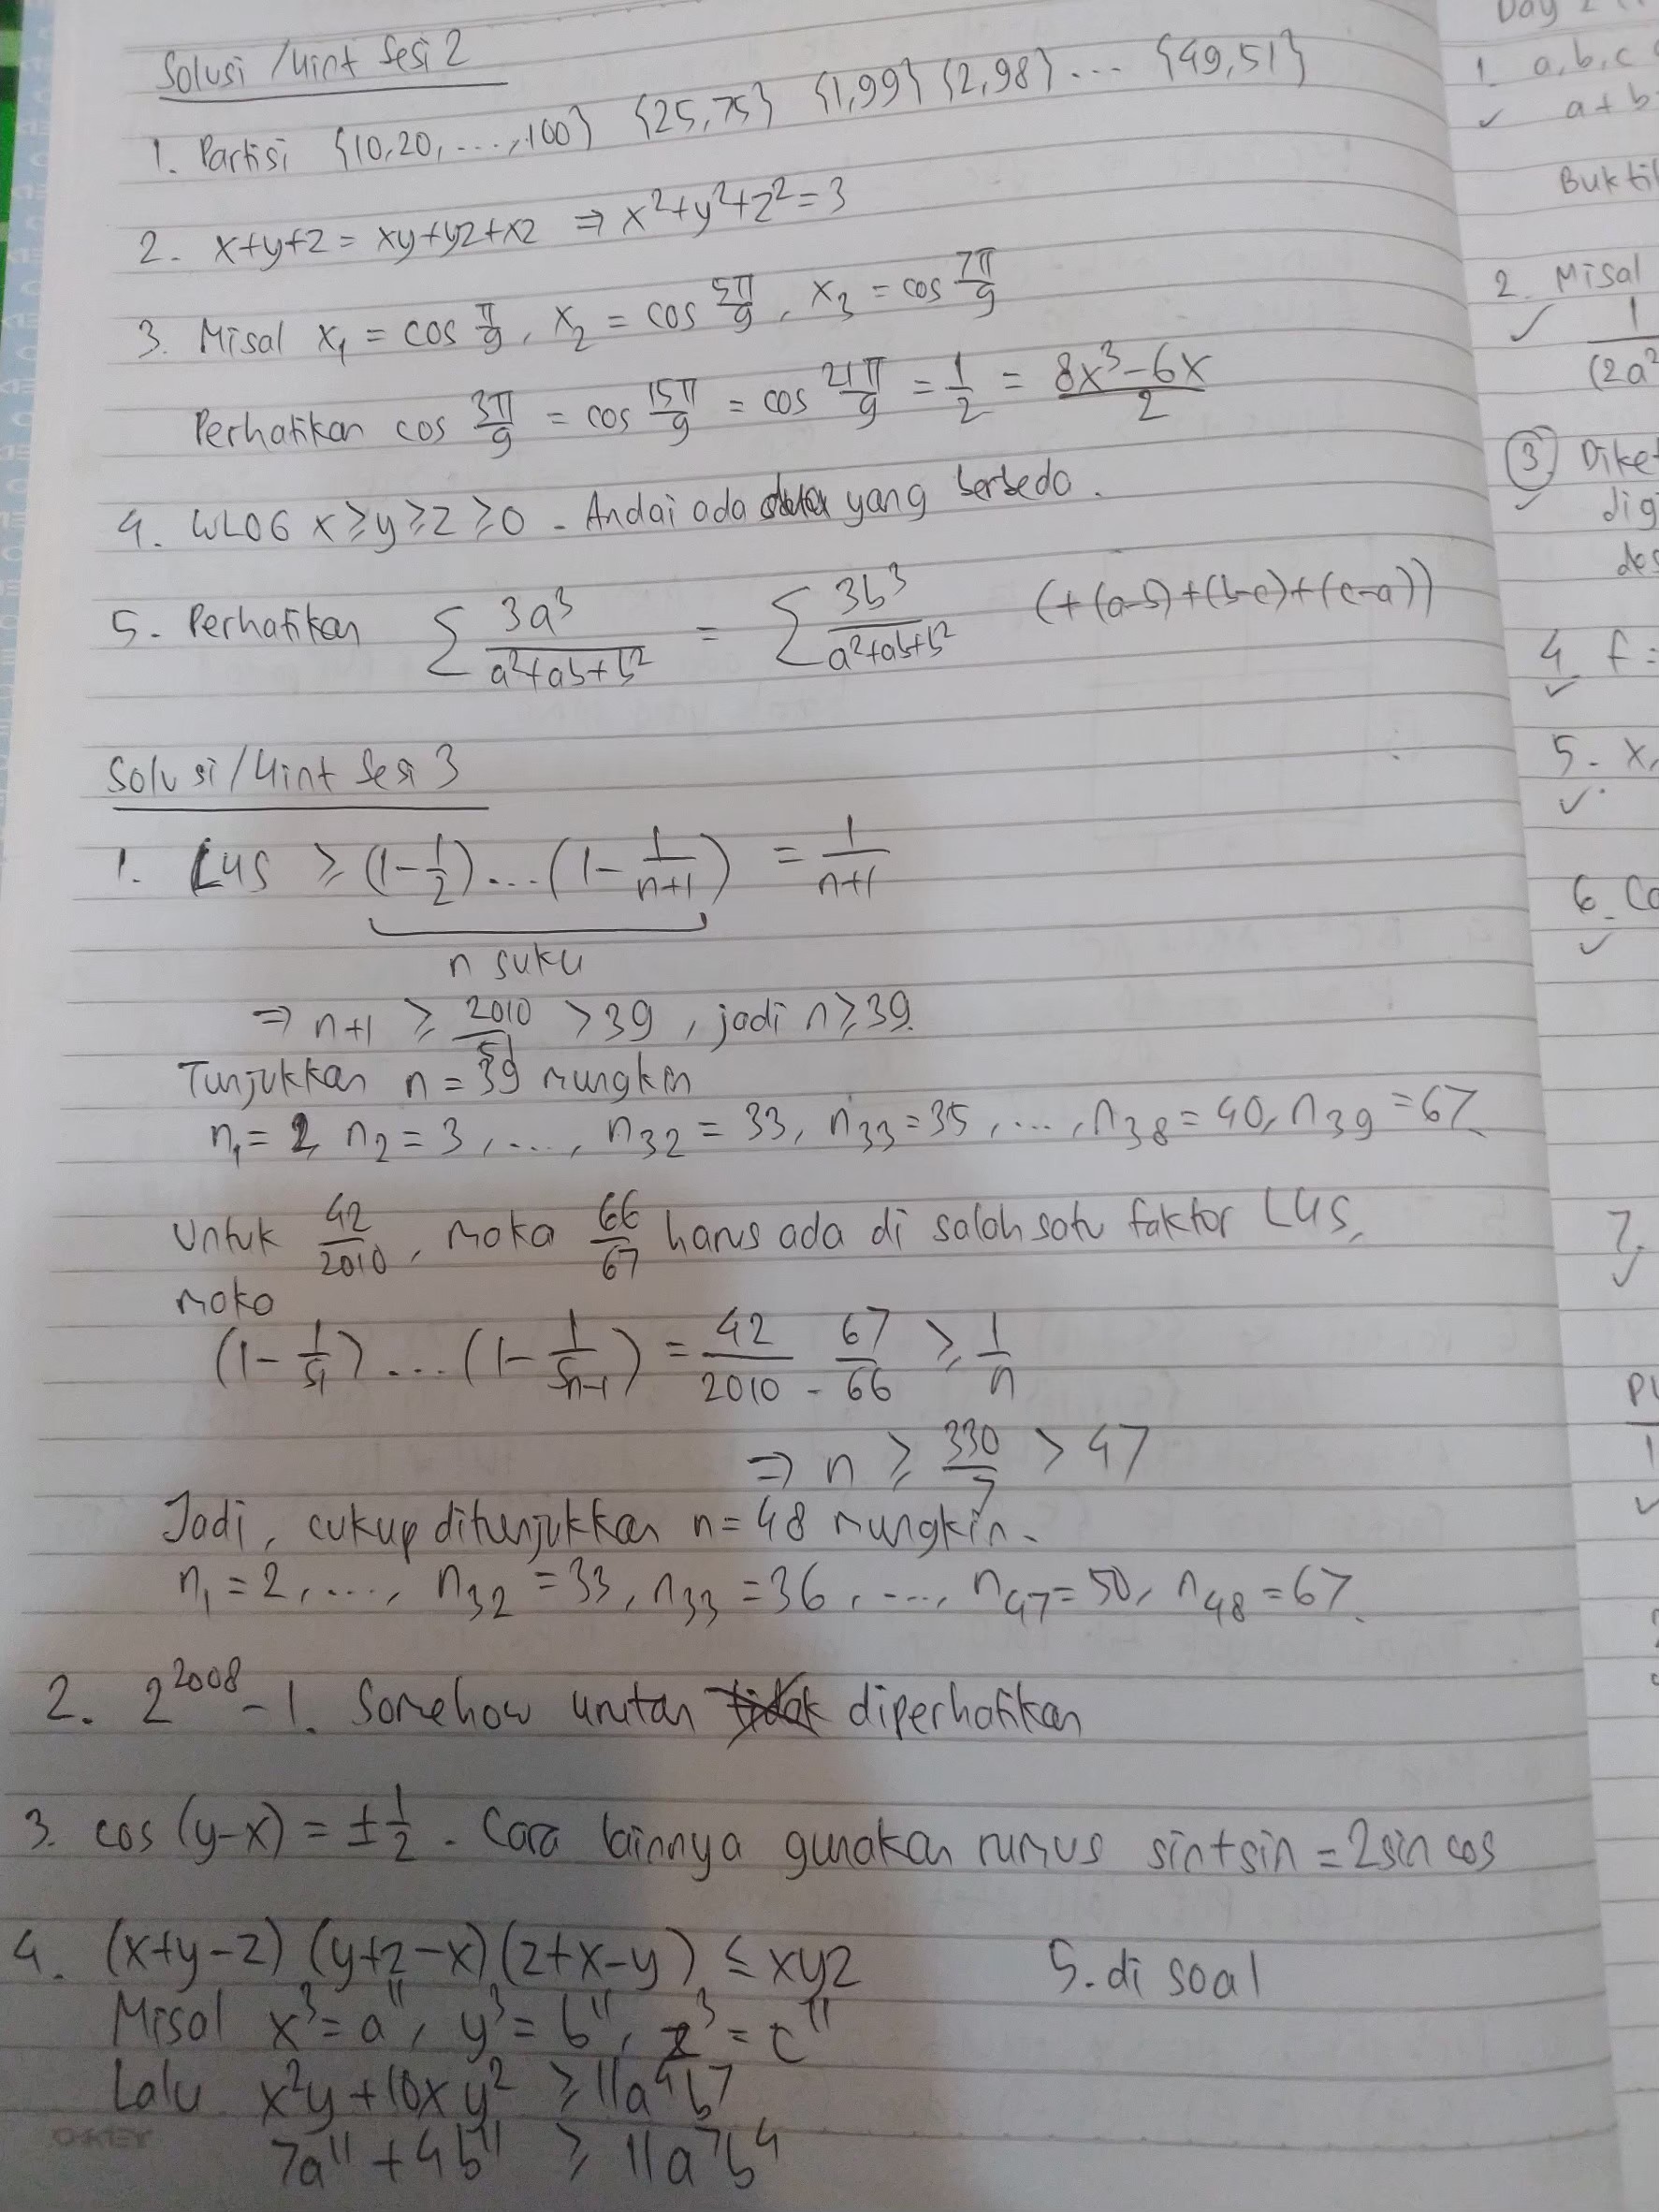 Solusi / Hint Sesi 2
1. Partisi {10,20,...,100} {25,75} {1,99} {2,98} ... {49,51}
2. x+y+z = xy+yz+xz ⇒ x²+y²+z²=3
3. Misal x₁ = cos π/9, x₂ = cos 5π/9, x₃ = cos 7π/9
Perhatikan cos 3π/9 = cos 15π/9 = cos 21π/9 = 1/2 = (8x³-6x)/2
4. WLOG x≥y≥z≥0. Andai ada yang berbeda.
5. Perhatikan Σ 3a³/(a²+ab+b²) = Σ 3b³/(a²+ab+b²) (+(a-b)+(b-c)+(c-a))
Solusi / Hint Sesi 3
1. LHS ≥ (1-1/2)...(1-1/(n+1)) = 1/(n+1)
n suku
⇒ n+1 ≥ 2010/51 > 39, jadi n≥39.
Tunjukkan n = 39 mungkin
n₁=2, n₂=3, ..., n₃₂=33, n₃₃=35, ..., n₃₈=40, n₃₉=67.
Untuk 42/2010, maka 66/67 harus ada di salah satu faktor LHS,
maka
(1-1/s₁)...(1-1/sₙ₋₁) = 42/2010 · 67/66 ≥ 1/n
⇒ n ≥ 330/7 > 47
Jadi, cukup ditunjukkan n=48 mungkin.
n₁=2, ..., n₃₂=33, n₃₃=36, ..., n₄₇=50, n₄₈=67.
2. 2²⁰⁰⁸-1. Somehow urutan tidak diperhatikan
3. cos(y-x) = ±1/2. Cara lainnya gunakan rumus sin+sin=2sin cos
4. (x+y-z)(y+z-x)(z+x-y) ≤ xyz
5. di soal
Misal x³=a¹¹, y³=b¹¹, z³=c¹¹
Lalu x²y+10xy² ≥ 11a⁴b⁷
7a¹¹+4b¹¹ ≥ 11a⁷b⁴
Day 2
1. a,b,c
a+b
2. Misal
1
(2a²
3. Diket
dig
des
4. f =
5. x,
6. Co
7.